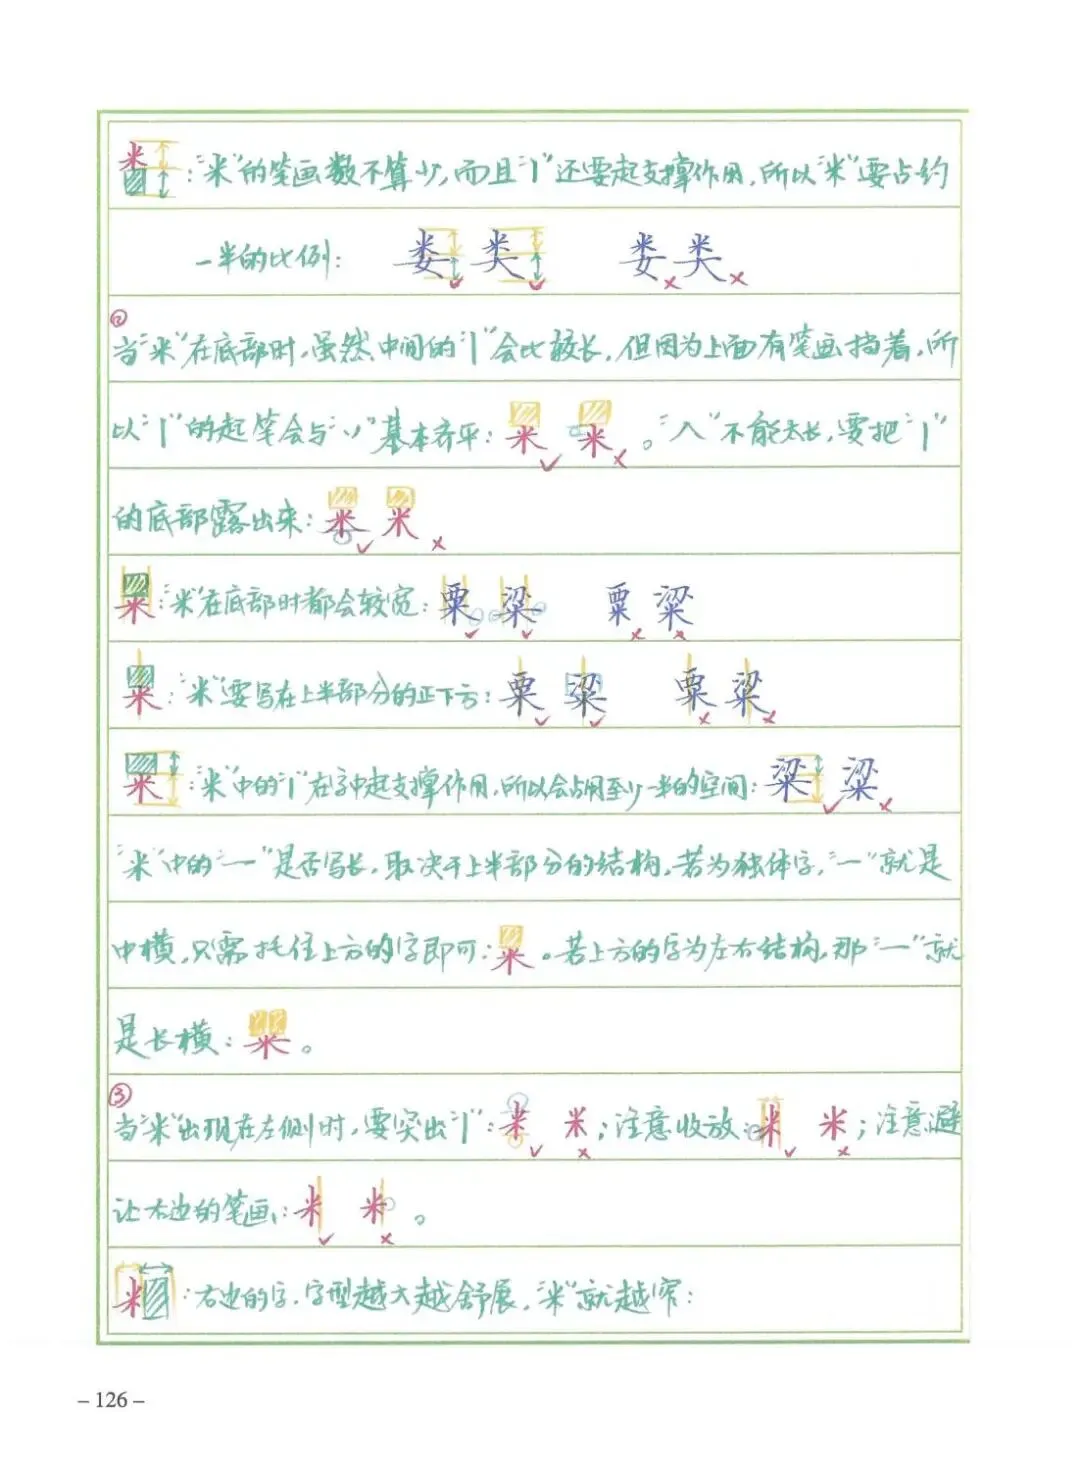 米：“米”的笔画数不算少，而且“丨”还要起支撑作用，所以“米”要占约
一半的比例：娄 类 娄 类
②
当“米”在底部时，虽然中间的“丨”会比较长，但因为上面有笔画挡着，所
以“丨”的起笔会与“丷”基本齐平：米 米。“八”不能太长，要把“丨”
的底部露出来：米 米
米：“米”在底部时都会较宽：粟 粱 粟 粱
米：“米”要写在上半部分的正下方：粟 粱 粟 粱
米：“米”中的“丨”在字中起支撑作用，所以会占用至少一半的空间：粱 粱
“米”中的“一”是否写长，取决于上半部分的结构，若为独体字，“一”就是
中横，只需托住上方的字即可：米。若上方的字为左右结构，那“一”就
是长横：米。
③
当“米”出现在左侧时，要突出“丨”：米 米；注意收放：米 米；注意避
让右边的笔画：米 米。
米：右边的字，字型越大越舒展，“米”就越窄：
– 126 –